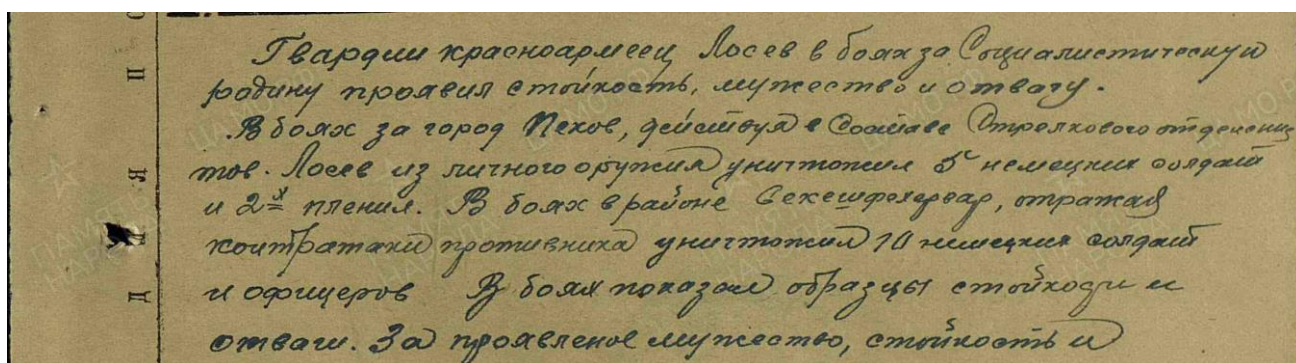 Гвардии красноармеец Лосев в боях за Социалистическую
родину проявил стойкость, мужество и отвагу.
В боях за город Пехов, действуя в составе Стрелкового отделения
тов. Лосев из личного оружия уничтожил 5 немецких солдат
и 2х пленил. В боях в районе Секешфехервар, отражая
контратаки противника уничтожил 10 немецких солдат
и офицеров В боях показал образцы стойкости и
отваги. За проявленое мужество, стойкость и